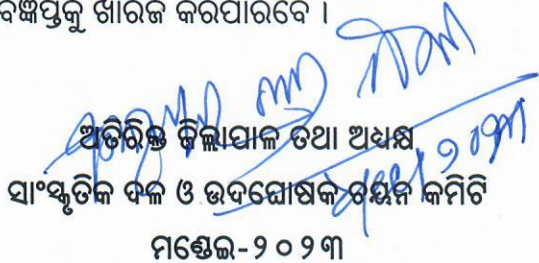 ବିଜ୍ଞପ୍ତିକୁ ଖାରଜ କରିପାରିବେ ।
ଅତିରିକ୍ତ ଜିଲ୍ଲାପାଳ ତଥା ଅଧ୍ୟକ୍ଷ
ସାଂସ୍କୃତିକ ଦଳ ଓ ଉଦଘୋଷକ ଚୟନ କମିଟି
ମଣ୍ଡେଇ-୨୦୨୩